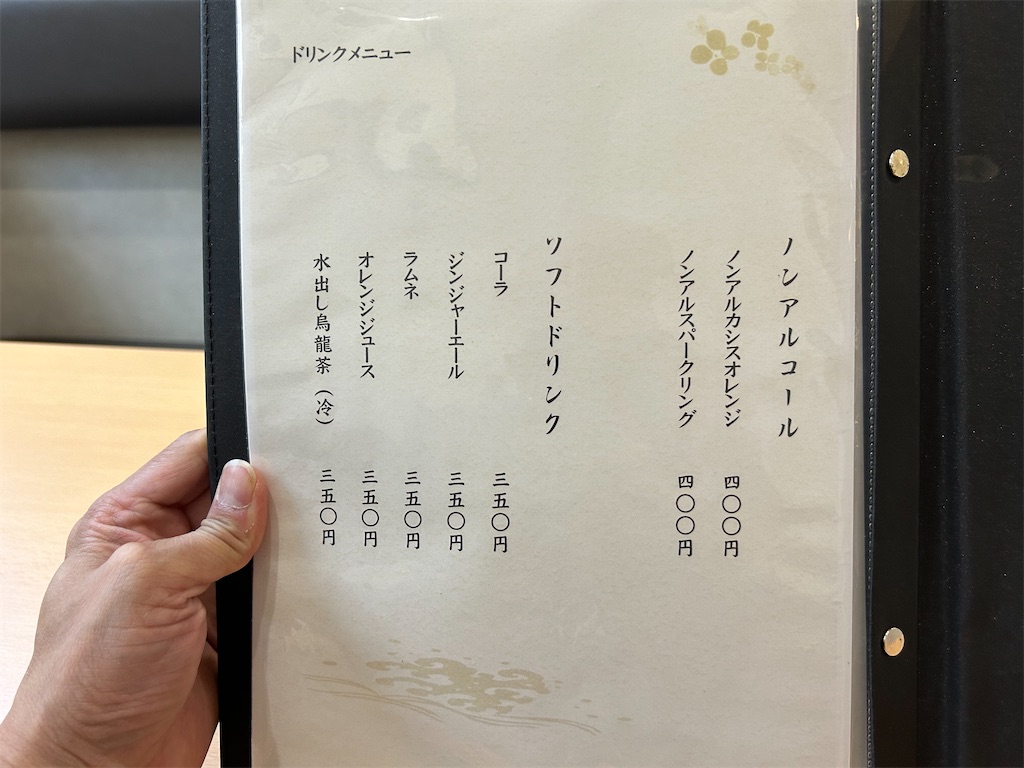 ドリンクメニュー
ノンアルコール
ノンアルカシスオレンジ 四〇〇円
ノンアルスパークリング 四〇〇円
ソフトドリンク
コーラ 三五〇円
ジンジャーエール 三五〇円
ラムネ 三五〇円
オレンジジュース 三五〇円
水出し烏龍茶（冷） 三五〇円